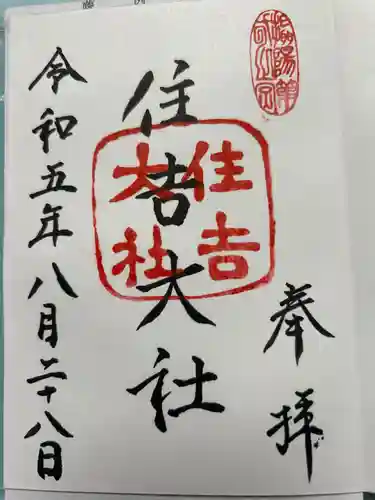 奉拝
住吉大社
住吉
大社
令和五年八月二十八日